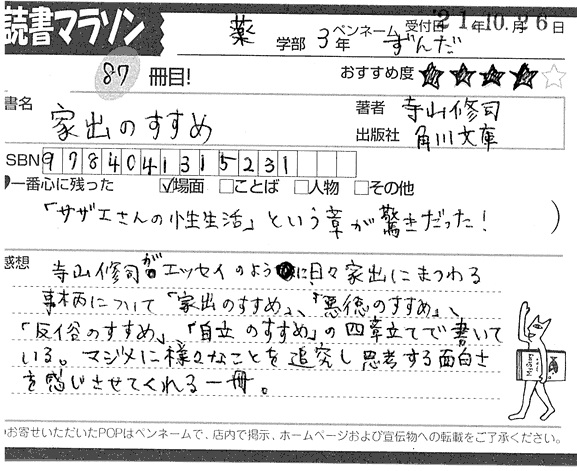 読書マラソン
薬 学部 3年 ペンネーム ずんだ 受付日 '21年10月26日
87 冊目! おすすめ度 ★★★★☆
書名 家出のすすめ
著者 寺山修司
出版社 角川文庫
ISBN 9784041315231
一番心に残った ☑場面 □ことば □人物 □その他
「サザエさんの性生活」という章が驚きだった! )
感想 寺山修司がエッセイのように日々家出にまつわる
事柄について「家出のすすめ」、「悪徳のすすめ」、
「反俗のすすめ」、「自立のすすめ」の四章立てで書いて
いる。マジメに様々なことを追究し思考する面白さ
を感じさせてくれる一冊。
お寄せいただいたPOPはペンネームで、店内で掲示、ホームページおよび宣伝物への転載をご了承ください。